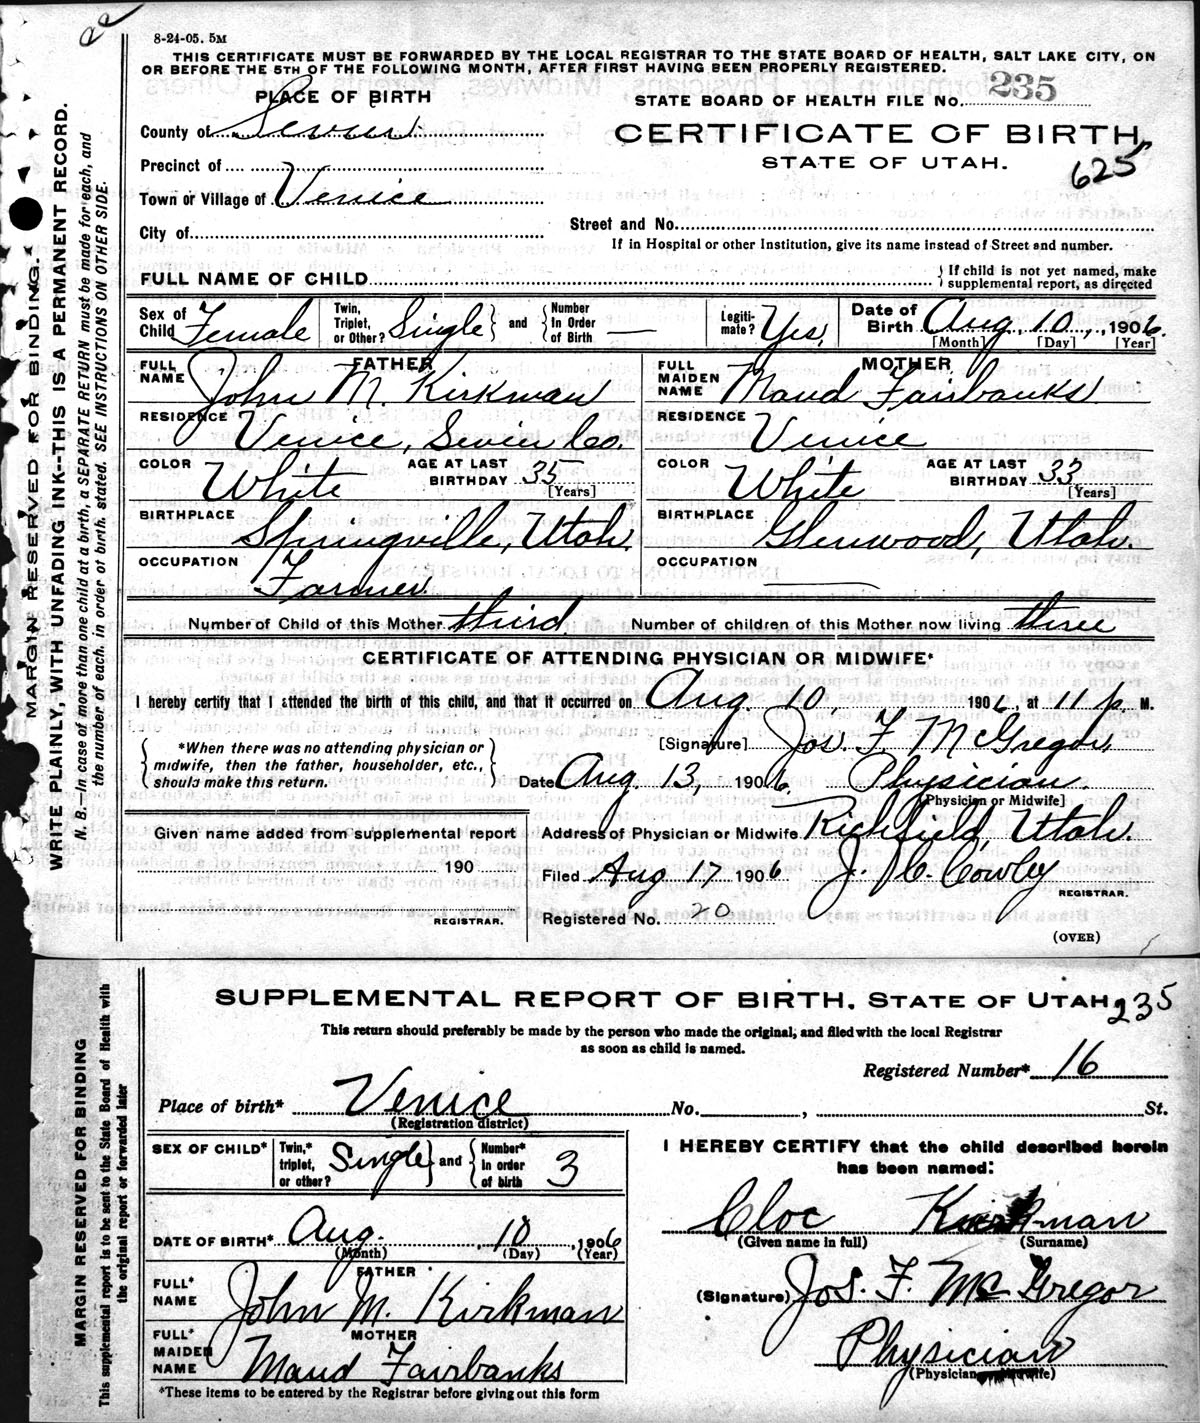 8-24-05. 5M
THIS CERTIFICATE MUST BE FORWARDED BY THE LOCAL REGISTRAR TO THE STATE BOARD OF HEALTH, SALT LAKE CITY, ON
OR BEFORE THE 5TH OF THE FOLLOWING MONTH, AFTER FIRST HAVING BEEN PROPERLY REGISTERED.
PLACE OF BIRTH
STATE BOARD OF HEALTH FILE NO. 235
County of Sevier
CERTIFICATE OF BIRTH
STATE OF UTAH.
625
Precinct of
Town or Village of Venice
City of
Street and No.
If in Hospital or other Institution, give its name instead of Street and number.
FULL NAME OF CHILD
{ If child is not yet named, make supplemental report, as directed
Sex of Child Female
Twin, Triplet, or Other? Single } and { Number In Order of Birth —
Legiti-mate? Yes,
Date of Birth Aug. 10, 1906.
[Month] [Day] [Year]
FATHER
FULL NAME John M. Kirkman
RESIDENCE Venice, Sevier Co.
COLOR White
AGE AT LAST BIRTHDAY 35 [Years]
BIRTHPLACE Springville, Utah.
OCCUPATION Farmer.
MOTHER
FULL MAIDEN NAME Maud Fairbanks.
RESIDENCE Venice
COLOR White
AGE AT LAST BIRTHDAY 33 [Years]
BIRTHPLACE Glenwood, Utah.
OCCUPATION
Number of Child of this Mother third. Number of children of this Mother now living three
CERTIFICATE OF ATTENDING PHYSICIAN OR MIDWIFE*
I hereby certify that I attended the birth of this child, and that it occurred on Aug. 10, 1906, at 11 p. M.
{ *When there was no attending physician or midwife, then the father, householder, etc., should make this return. }
[Signature] Jos. F. McGregor,
Date Aug. 13, 1906. Physician.
[Physician or Midwife]
Given name added from supplemental report
190
REGISTRAR.
Address of Physician or Midwife Richfield, Utah.
Filed Aug 17 1906 J. C. Cowley
REGISTRAR.
Registered No. 20
(OVER)
MARGIN RESERVED FOR BINDING.
WRITE PLAINLY, WITH UNFADING INK--THIS IS A PERMANENT RECORD.
N. B.—In case of more than one child at a birth, a SEPARATE RETURN must be made for each, and
the number of each, in order of birth, stated. SEE INSTRUCTIONS ON OTHER SIDE.
SUPPLEMENTAL REPORT OF BIRTH. STATE OF UTAH 235
This return should preferably be made by the person who made the original, and filed with the local Registrar
as soon as child is named.
Registered Number* 16
Place of birth* Venice No. , St.
(Registration district)
SEX OF CHILD*
Twin,* triplet, or other? Single } and { Number* in order of birth 3
DATE OF BIRTH* Aug. 10, 1906
(Month) (Day) (Year)
FATHER
FULL* NAME John M. Kirkman
MOTHER
FULL* MAIDEN NAME Maud Fairbanks
*These items to be entered by the Registrar before giving out this form
I HEREBY CERTIFY that the child described herein
has been named:
Cloe Kirkman
(Given name in full) (Surname)
(Signature) Jos. F. McGregor
Physician
(Physician or Midwife)
MARGIN RESERVED FOR BINDING
This supplemental report is to be sent to the State Board of Health with
the original report or forwarded later